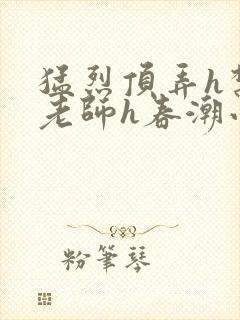 猛烈頂弄h
老師h春潮
粉筆琴